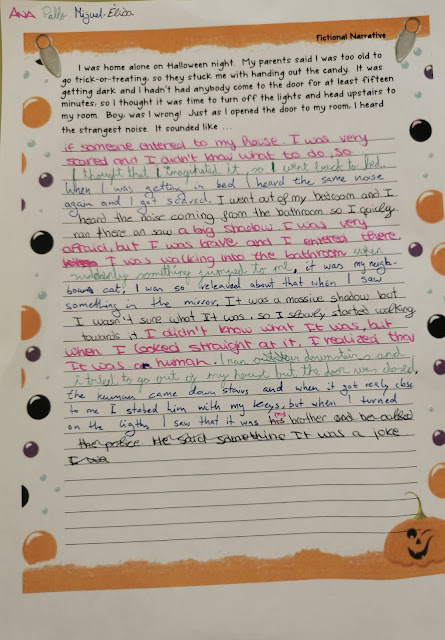 ANA Pablo Miguel-Elisa
Fictional Narrative
I was home alone on Halloween night. My parents said I was too old to
go trick-or-treating, so they stuck me with handing out the candy. It was
getting dark and I hadn't had anybody come to the door for at least fifteen
minutes, so I thought it was time to turn off the lights and head upstairs to
my room. Boy, was I wrong! Just as I opened the door to my room, I heard
the strangest noise. It sounded like ...
if someone entered to my house. I was very
scared and I didn't know what to do, so
I thought that I imaginated it, so I went back to bed.
When I was getting in bed I heard the same noise
again and I got scared, I went out of my bedroom and I
heard the noise coming from the bathroom so I quicly
ran there an saw a big shadow. I was very
afraid, but I was brave and I entered there.
I was walking into the bathroom when
suddenly something jumped to me, it was my neigh-
bours cat, I was so releaved about that when I saw
something in the mirror. It was a massive shadow but
I wasn't sure what It was, so I slowly started walking
towards it. I didn't know what It was, but
when I looked straight at it, I realized that
It was a human. I ran downstairs and
i tried to go out of my house but the door was closed,
the human came down stairs and when it got really close
to me I stabed him with my keys, but when I turned
on the ligths I saw that it was his brother and he called
the police. He said something It was a joke
I wa